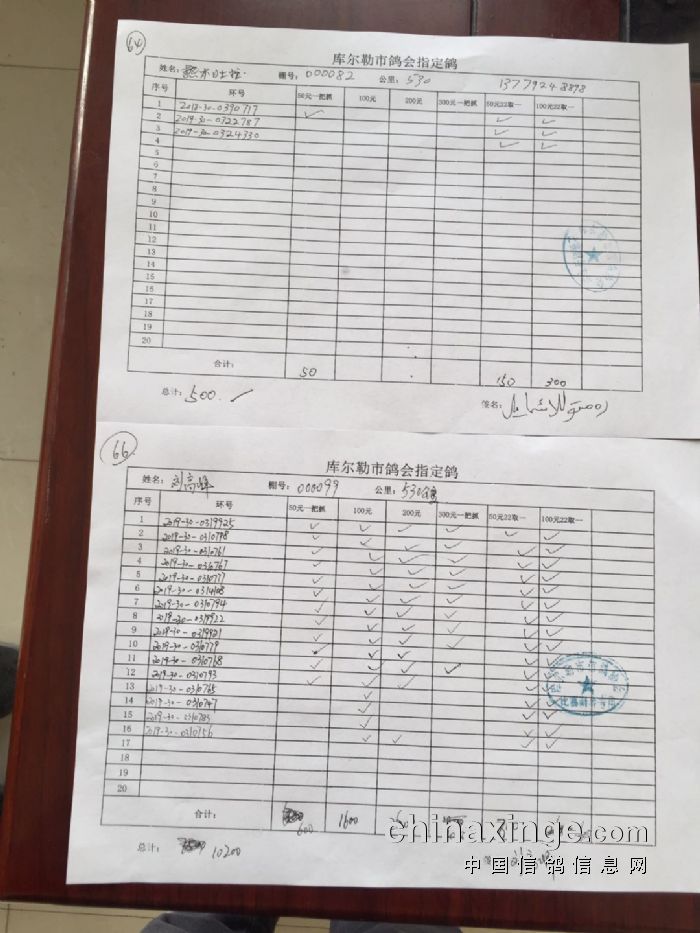 64
库尔勒市鸽会指定鸽
姓名: 棚号: 000082 公里: 530 13779248898
序号 环号 50元一把抓 100元 200元 300元一把抓 50元22取一 100元22取一
1 2018-30-0390717
2 2019-30-0322787
3 2019-30-0324330
4
5
6
7
8
9
10
11
12
13
14
15
16
17
18
19
20
合计: 50 150 300
总计: 500.
签名:
66
库尔勒市鸽会指定鸽
姓名: 刘高峰 棚号: 000099 公里: 530
序号 环号 50元一把抓 100元 200元 300元一把抓 50元22取一 100元22取一
1 2019-30-0319925
2 2019-30-0310798
3 2019-30-0310761
4 2019-30-0310767
5 2019-30-0310777
6 2019-30-0314108
7 2019-30-0310794
8 2019-30-0319922
9 2019-30-0319921
10 2019-30-0310779
11 2019-30-0310768
12 2019-30-0310793
13 2019-30-0310765
14 2019-30-0310747
15 2019-30-0310783
16 2019-30-0310756
17
18
19
20
合计: 600 1600
总计: 10200
chinaxinge.com
中国信鸽信息网